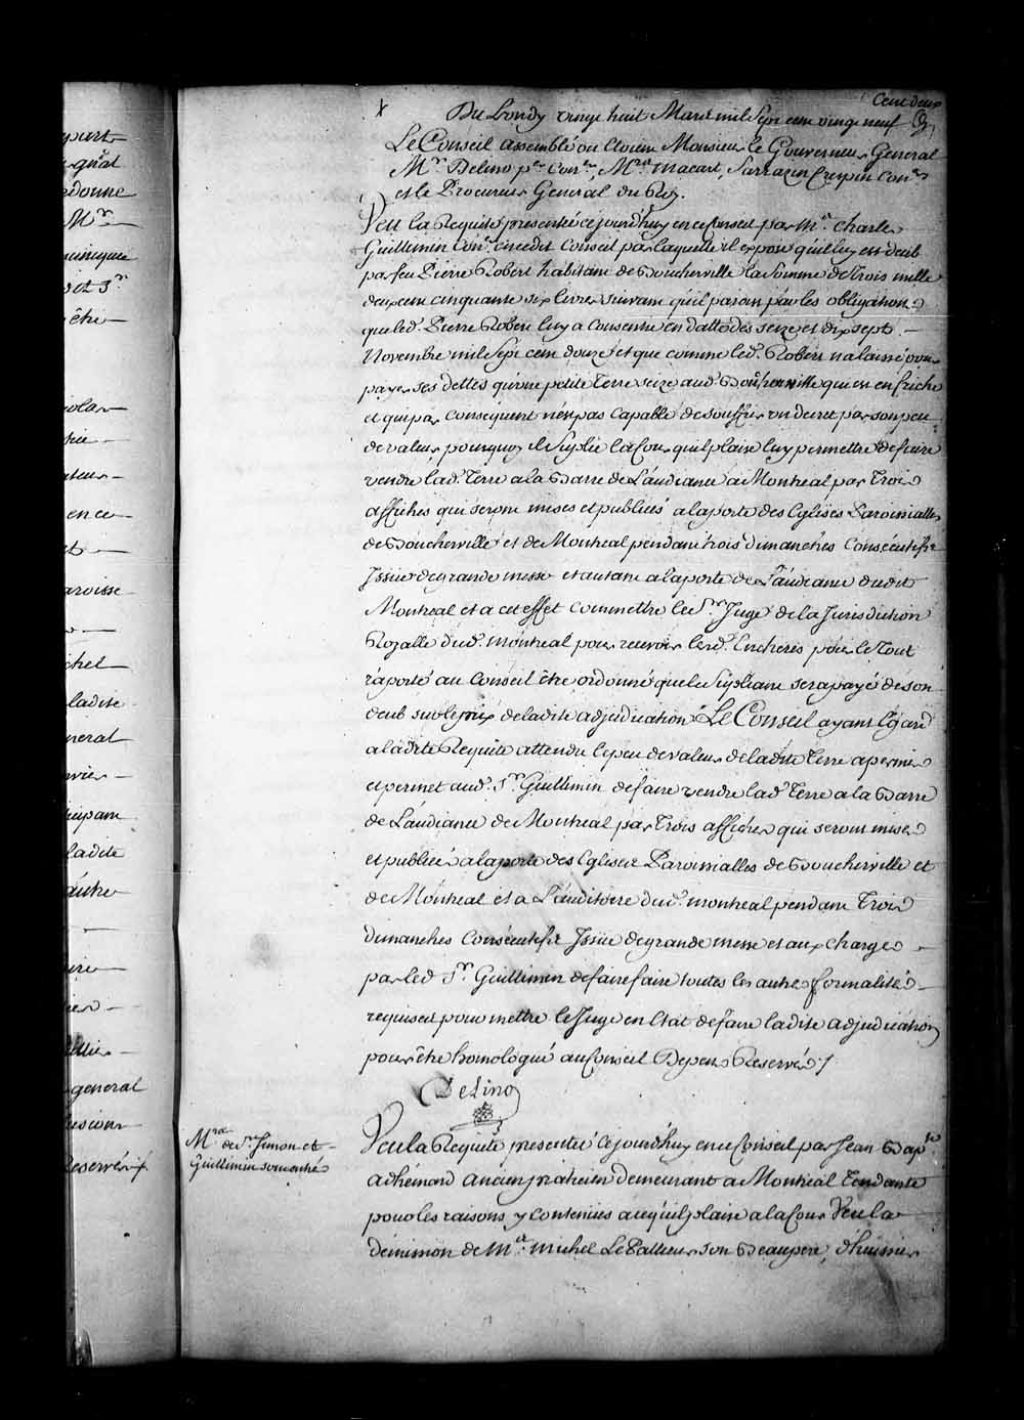 Cent deux
Du Lundy vingt huit Mars mil Sept cent vingt neuf
Le Conseil assemblé ou Etoient Monsieur le Gouverneur General
Mr. Delino pr. Conr., Mrs. macart, Sarrazin Crespin Conrs
et le Procureur General du Roy.
Veu la Requête presentée cejourd'huy en ce Conseil par Mr. Charles
Guillimin Conr. en cedit Conseil par laquelle il expose qu'il luy est deub
par feu Pierre Robert habitant de Boucherville la Somme de trois mille
deux cent cinquante six livres suivant qu'il paroit par les obligations
que led. Pierre Robert luy a Consentie en datte des seize et dix sept
Novembre mil Sept cent douze et que comme led. Robert n'a laissé pour
payer ses dettes qu'une petite Terre size aud. Boucherville qui est en friche
et qui par consequent n'est pas capable de souffrir un decret par son peu
de valeur, pourquoy il Suplie la Cour qu'il plaise luy permettre de faire
vendre lad. Terre a la Barre de L'audiance a Montreal par Trois
affiches qui seront mises et publiées a la porte des Eglises Paroissialles
de Boucherville et de Montreal pendant trois dimanches Consécutifs
Issüe de grande messe et autant a la porte de L'audiance dudit
Montreal et a cet effet commettre le Sr. Juge de la Jurisdiction
Royalle dud. montreal pour recevoir lesd. Encheres pour le Tout
raporté au Conseil être ordonné que le Supliant sera payé de son
deub sur le prix de ladite adjudication Le Conseil ayant Egard
a ladite Requête attendu le peu de valeur de ladite Terre a permis
et permet aud. Sr. Guillimin de faire vendre lad. Terre a la Barre
de L'audiance de Montreal par Trois affiches qui seront mises
et publiées a la porte des Eglises Paroissialles de Boucherville et
de Montreal et a L'auditoire dud. montreal pendant Trois
dimanches Consécutifs Issüe de grande messe et aux charges
par led. Sr. Guillimin de faire faire toutes les autres formalités
requises pour mettre le Juge en Etat de faire ladite adjudication
pour être homologué au Conseil Depens Reservés ./
Delino
Mrs. de St. Simon et
Guillimin sont entrés
Veu la Requête presentée cejourd'huy en ce Conseil par Jean Bapte
adhémard ancien praticien demeurant a Montreal Tendante
pour les raisons y contenües a ce qu'il plaise a la Cour Veu la
démission de Me. michel Le Pallieur son Beaupere, d'huissier
part
gnal
donne
Mr.
et Sr.
être
en ce
et
aroisse
chel
ladite
neral
ladite
autre
general
Reservés ./.